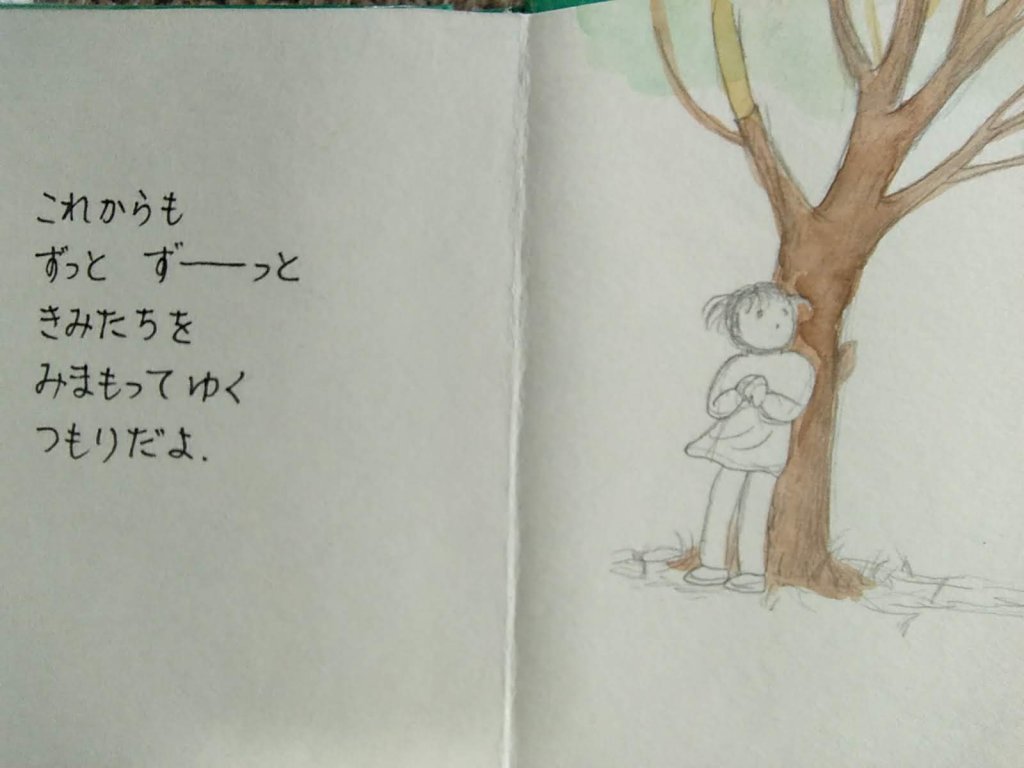 これからも
ずっと ず──っと
きみたちを
みまもって ゆく
つもりだよ.